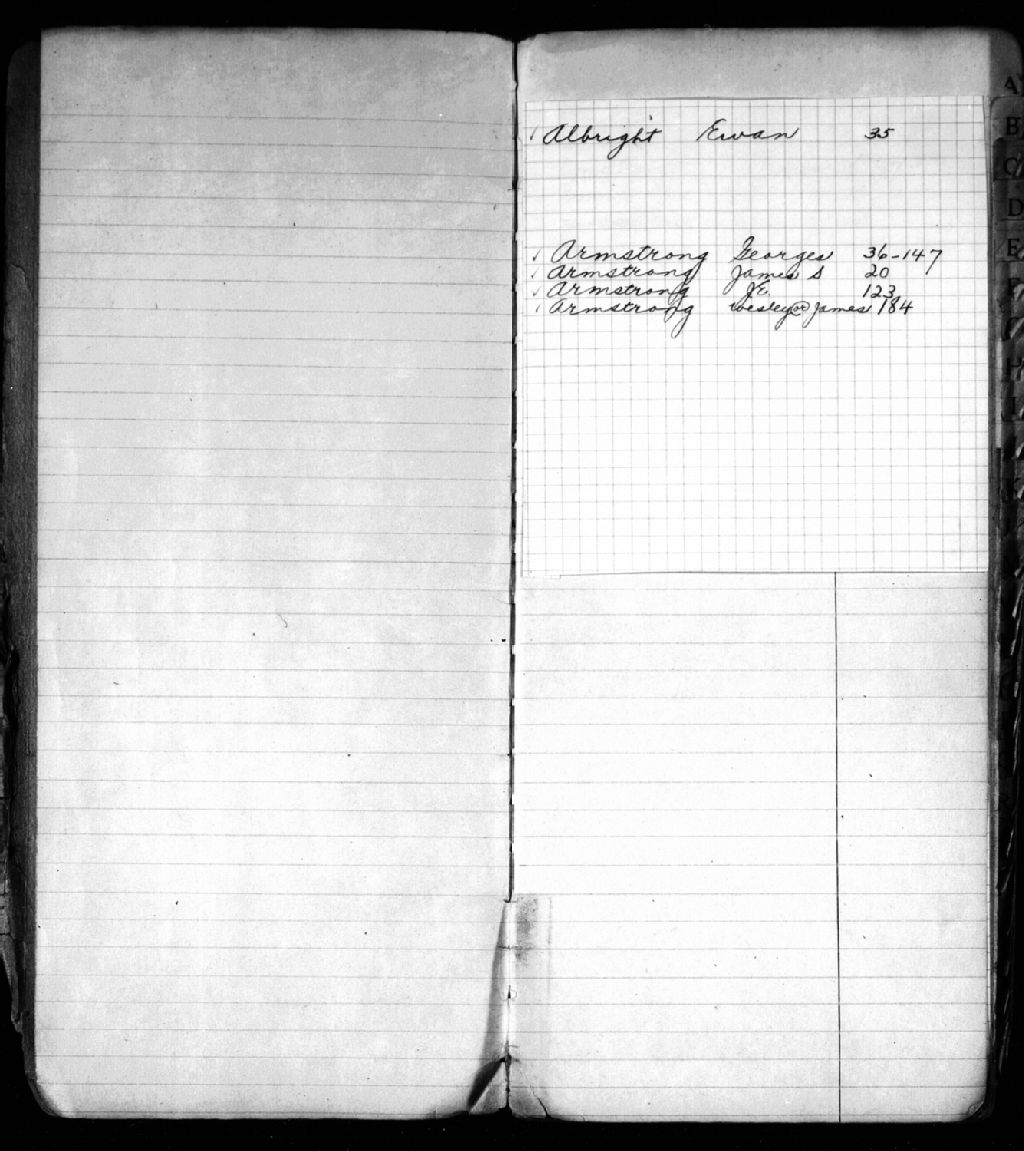 Albright Ewan 35
Armstrong Georges 36-147
Armstrong James S 20
Armstrong J.E. 123
Armstrong Wesley @ James 184
A
B
C
D
E
F
H
I